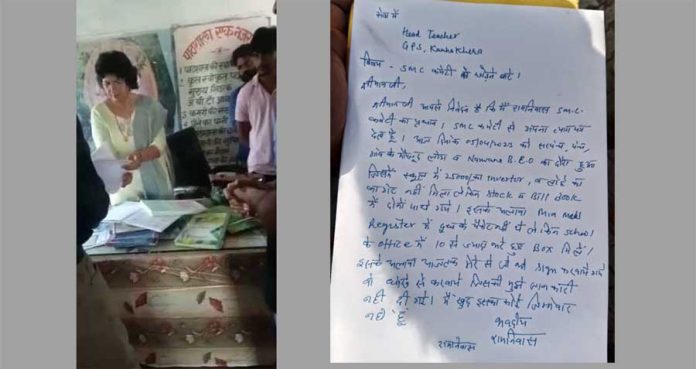 पाठशाला एक नजर
सेवा में
Head Teacher
GPS, Kanhakhera
विषय - SMC कमेटी को छोड़ने बारे।
श्रीमान जी,
श्रीमान जी आपसे निवेदन है कि मैं रामनिवास SMC
कमेटी का प्रधान। SMC कमेटी से अपना त्याग पत्र
देता हूँ। आज दिनांक 05/04/2023 को सरपंच, पंच,
गांव के मौजूद लोग व Narwana B.E.O का दौरा हुआ
जिसमें स्कूल में 25000/का Invertor, व लोहे का
का गेट नहीं मिला लेकिन Stock व Bill Book
में दोनों पाये गये। इसके अलावा Mid meal
Register में दूध के पैकेट नहीं थे लेकिन School
के office में 10 से ज्यादा भरे हुए Box मिले।
इसके अलावा आजतक मेरे से जो भी sign करवाये गये
वो धोखे से करवाये जिसकी मुझे जानकारी
नहीं दी गई। मैं खुद इसका कोई जिम्मेवार
नहीं हूं
भवदीय
रामनिवास
रामनिवास